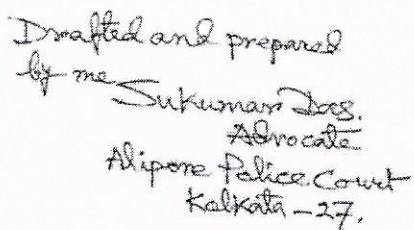 Drafted and prepared
by me
Sukuman Das.
Advocate
Alipore Police Court
Kolkata - 27.